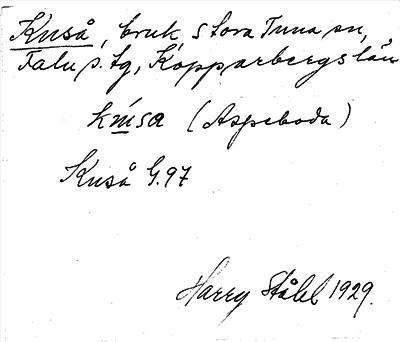 Knså, bruk Stora Tuna sn,
Falu s. tg, Kopparbergs län
(Aspeboda)
Knså G.97
Harry Ståhl 1929.